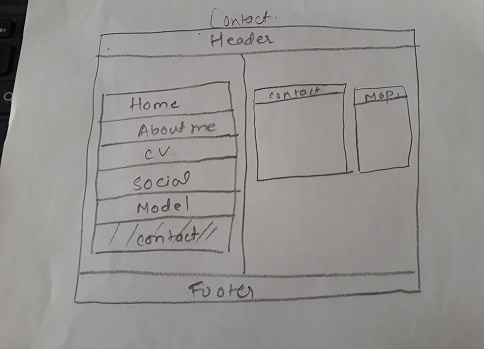 Contact.
Header
Home
About me
CV
Social
Model
Contact
Contact
Map.
Footer